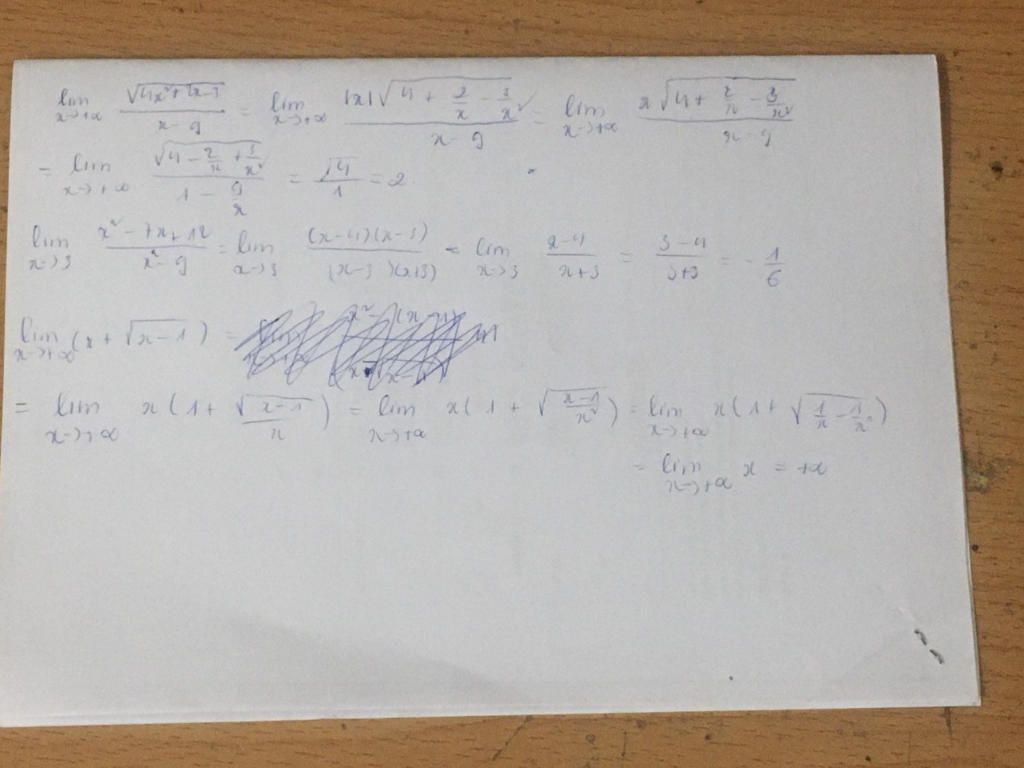 lim x→+∞ √(4x²+2x-3) / (x-9) = lim x→+∞ |x|√(4 + 2/x - 3/x²) / (x-9) = lim x→+∞ x√(4 + 2/x - 3/x²) / (x-9)
= lim x→+∞ √(4 - 2/x + 3/x²) / (1 - 9/x) = √4/1 = 2
lim x→3 (x²-7x+12) / (x²-9) = lim x→3 (x-4)(x-3) / (x-3)(x+3) = lim x→3 (x-4)/(x+3) = (3-4)/(3+3) = -1/6
lim x→+∞ (x + √(x-1)) =
= lim x→+∞ x(1 + √(x-1)/x) = lim x→+∞ x(1 + √((x-1)/x²)) = lim x→+∞ x(1 + √(1/x - 1/x²))
= lim x→+∞ x = +∞